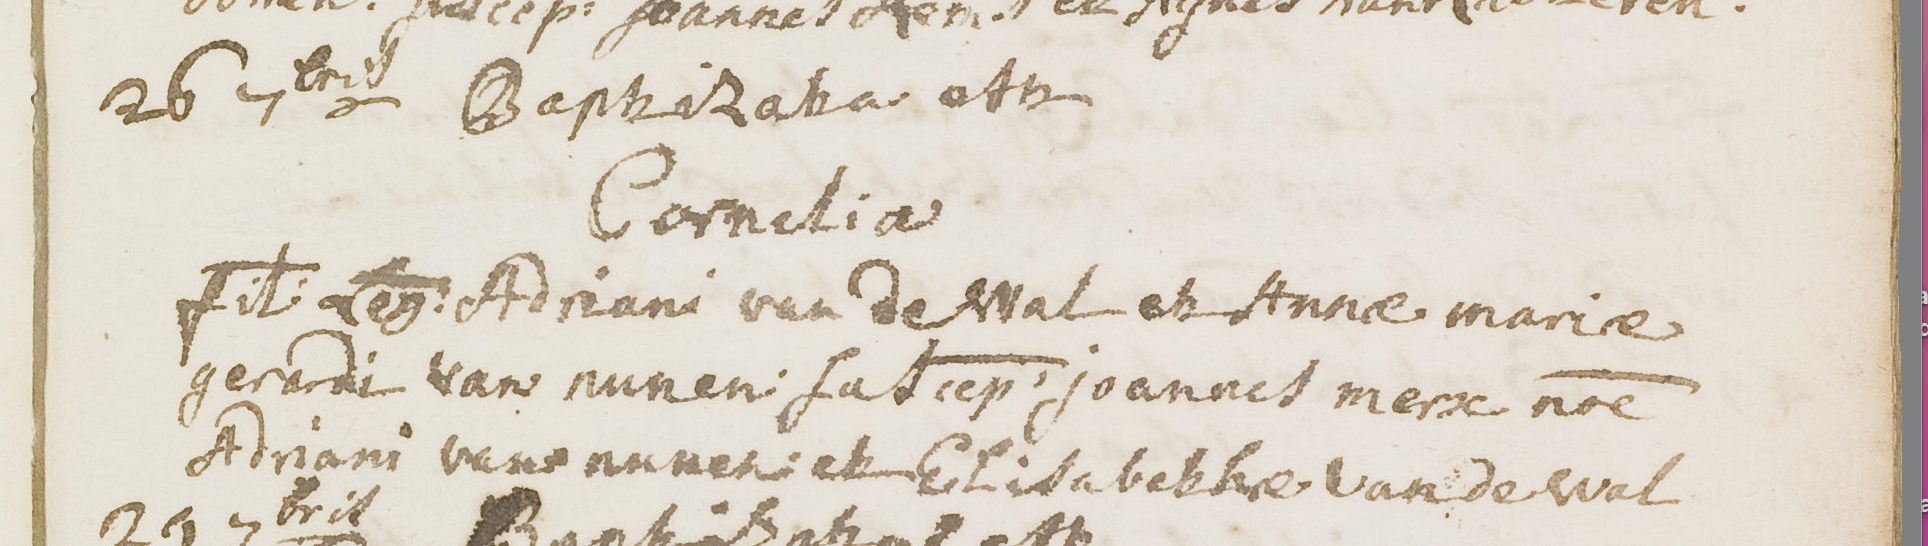 suscep: Joannes et Agnes
26 7bris Baptizata est
Cornelia
fil: leg: Adriani van de Wal et Annæ mariæ
gerardi van nunen: suscep: joannes merx noe
Adriani van nunen et Elisabethæ van de wal
29 7bris est